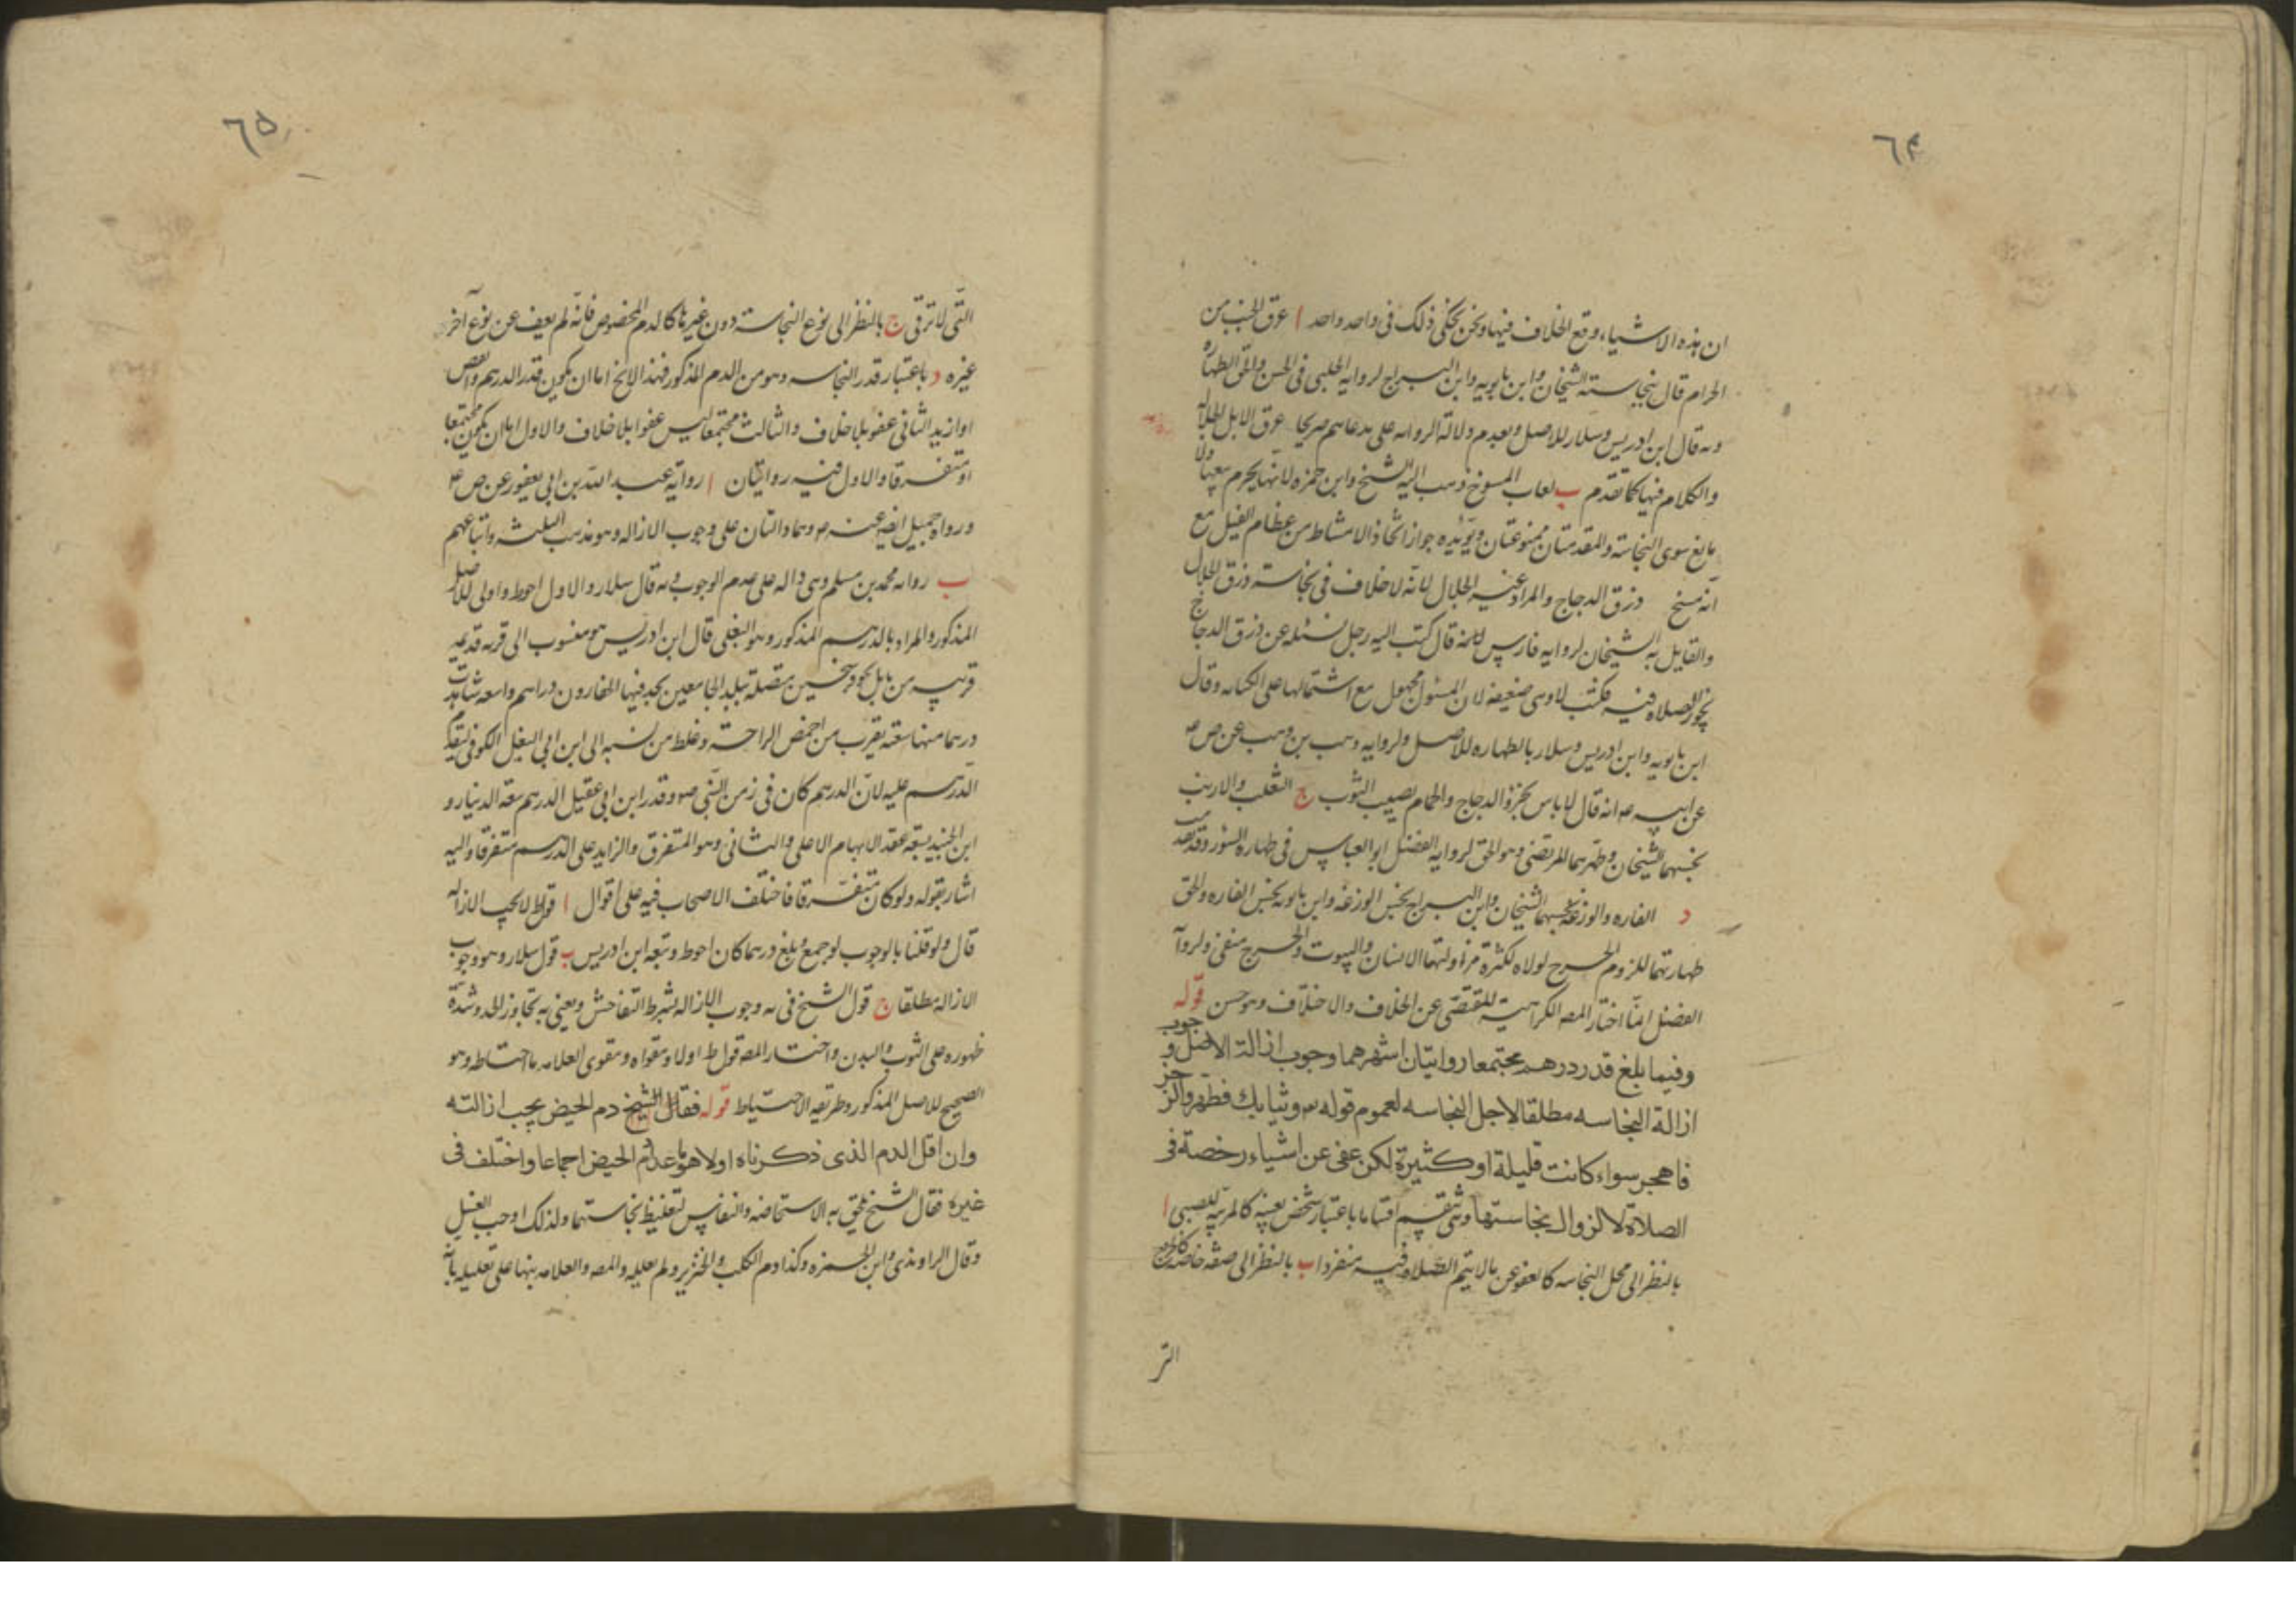 ٦٤
ان هذه الاشياء وقع الخلاف فيها ونحن نحكى ذلك فى واحد واحد ا عرق الجنب من
الحرام قال بنجاسته الشيخان وابن بابويه وابن البراج لرواية الحلبى فى الحسن والحق الطهارة
وبه قال ابن ادريس وسلار للاصل وبعدم دلالة الرواية على مدعاهم صريحا عرق الابل الجلالة
والكلام فيها كما تقدم ب لعاب المسوخ ذهب اليه الشيخ وابن حمزه لانها يحرم بيعها ولا
مانع سوى النجاسة والمقدمتان ممنوعتان ويؤيده جواز اتخاذ الامشاط من عظام الفيل مع
انه مسخ ذرق الدجاج والمراد غير الجلال لانه لا خلاف فى نجاسة ذرق الجلال
والقايل به الشيخان لرواية فارس قال كتب اليه رجل يسئله عن ذرق الدجاج
يجوز الصلاه فيه فكتب لا وهى ضعيفه لان المسئول مجهول مع اشتمالها على الكتابه وقال
ابن بابويه وابن ادريس وسلار بالطهاره للاصل ولروايه وهب بن وهب عن ص ع
عن ابيه ع انه قال لا باس بخرؤ الدجاج والحمام يصيب الثوب ج الثعلب والارنب
نجسهما الشيخان وطهرهما المرتضى وهو الحق لروايه الفضل ابو العباس فى طهاره السؤر وقد تقدمت
د الفاره والوزغه نجسهما الشيخان وابن البراج نجس الوزغه وابن بابويه نجس الفاره والحق
طهارتهما للزوم الحرج لولاه لكثرة مزاولتها الانسان والبيوت والحرج منفى ولرواية
الفضل انما اختار المصـ الكراهية للتقصى عن الخلاف والاختلاف وهو حسن قوله
وفيما بلغ قدر درهم مجتمعا روايتان اشهرهما وجوب ازالته الاصل وجوب
ازالة النجاسه مطلقا لاجل النجاسه لعموم قوله تع وثيابك فطهر والرجز
فاهجر سواء كانت قليلة او كثيرة لكن عفى عن اشياء رخصة فى
الصلاة لا لزوال نجاستها وهى تنقسم اقساما باعتبار شخص بعينه كالمربيه للصبى ا
بالنظر الى محل النجاسه كالعفو عن ما لا يتم الصلاه فيه منفردا ب بالنظر الى صفه خاصه كالجروح
التر
٦٥
التى لا ترقى ج بالنظر الى نوع النجاسة دون غيرها كالدم المخصوص فانه لم يعف عن نوع آخر
غيره د باعتبار قدر النجاسه وهو من الدم المذكور فهذا الاخ اما ان يكون قدر الدرهم وانقص
او ازيد الثانى عفو بلا خلاف والثالث مجتمعا ليس عفوا بلا خلاف والاول اما ان يكون مجتمعا
او متفرقا والاول فيه روايتان ا رواية عبد الله بن ابى يعفور عن ص ع
ورواه جميل ايضا عنه ع وهما دالتان على وجوب الازاله وهو مذهب الثلثه واتباعهم
ب روايه محمد بن مسلم وهى داله على عدم الوجوب وبه قال سلار والاول احوط واولى للاصل
المذكور والمراد بالدرهم المذكور وهو البغلى قال ابن ادريس هو منسوب الى قريه قديمه
قريبه من بابل نحو فرسخين متصلة ببلد الجامعين يجد فيها الحفارون دراهم واسعه شاهدت
درهما منها سعته يقرب من اخمص الراحة وغلط من نسبه الى ابن ابى البغل الكوفى لتقدم
الدرهم عليه لان الدرهم كان فى زمن النبى ص وقدر ابن ابى عقيل الدرهم سعة الدينار و
ابن الجنيد بسعة عقد الابهام الاعلى والثانى وهو المتفرق والزايد على الدرهم متفرقا واليه
اشار بقوله ولو كان متفرقا فاختلف الاصحاب فيه على اقوال ا قول ط لا يجب الازاله
قال ولو قلنا بالوجوب لو جمع وبلغ درهما كان احوط وتبعه ابن ادريس ب قول سلار وهو وجوب
الازاله مطلقا ج قول الشيخ فى يه وجوب الازاله بشرط التفاحش ويعنى به تجاوز الحد وشدة
ظهوره على الثوب والبدن واختار المصـ قول ط اولا وتقواه وتقوى العلامه ما احتاطه وهو
الصحيح للاصل المذكور وطريقه الاحتياط قوله فقال الشيخ دم الحيض يجب ازالته
وان اقل الدم الذى ذكرناه اولا هو ما عدا دم الحيض اجماعا واختلف فى
غيره فقال الشيخ يلحق به الاستحاضه والنفاس لتغليظ نجاستهما ولذلك اوجب الغسل
وقال الراوندى وابن الحمزه وكذا دم الكلب والخنزير ولم يعلله والمصـ والعلامه نبها على تعليله بانه